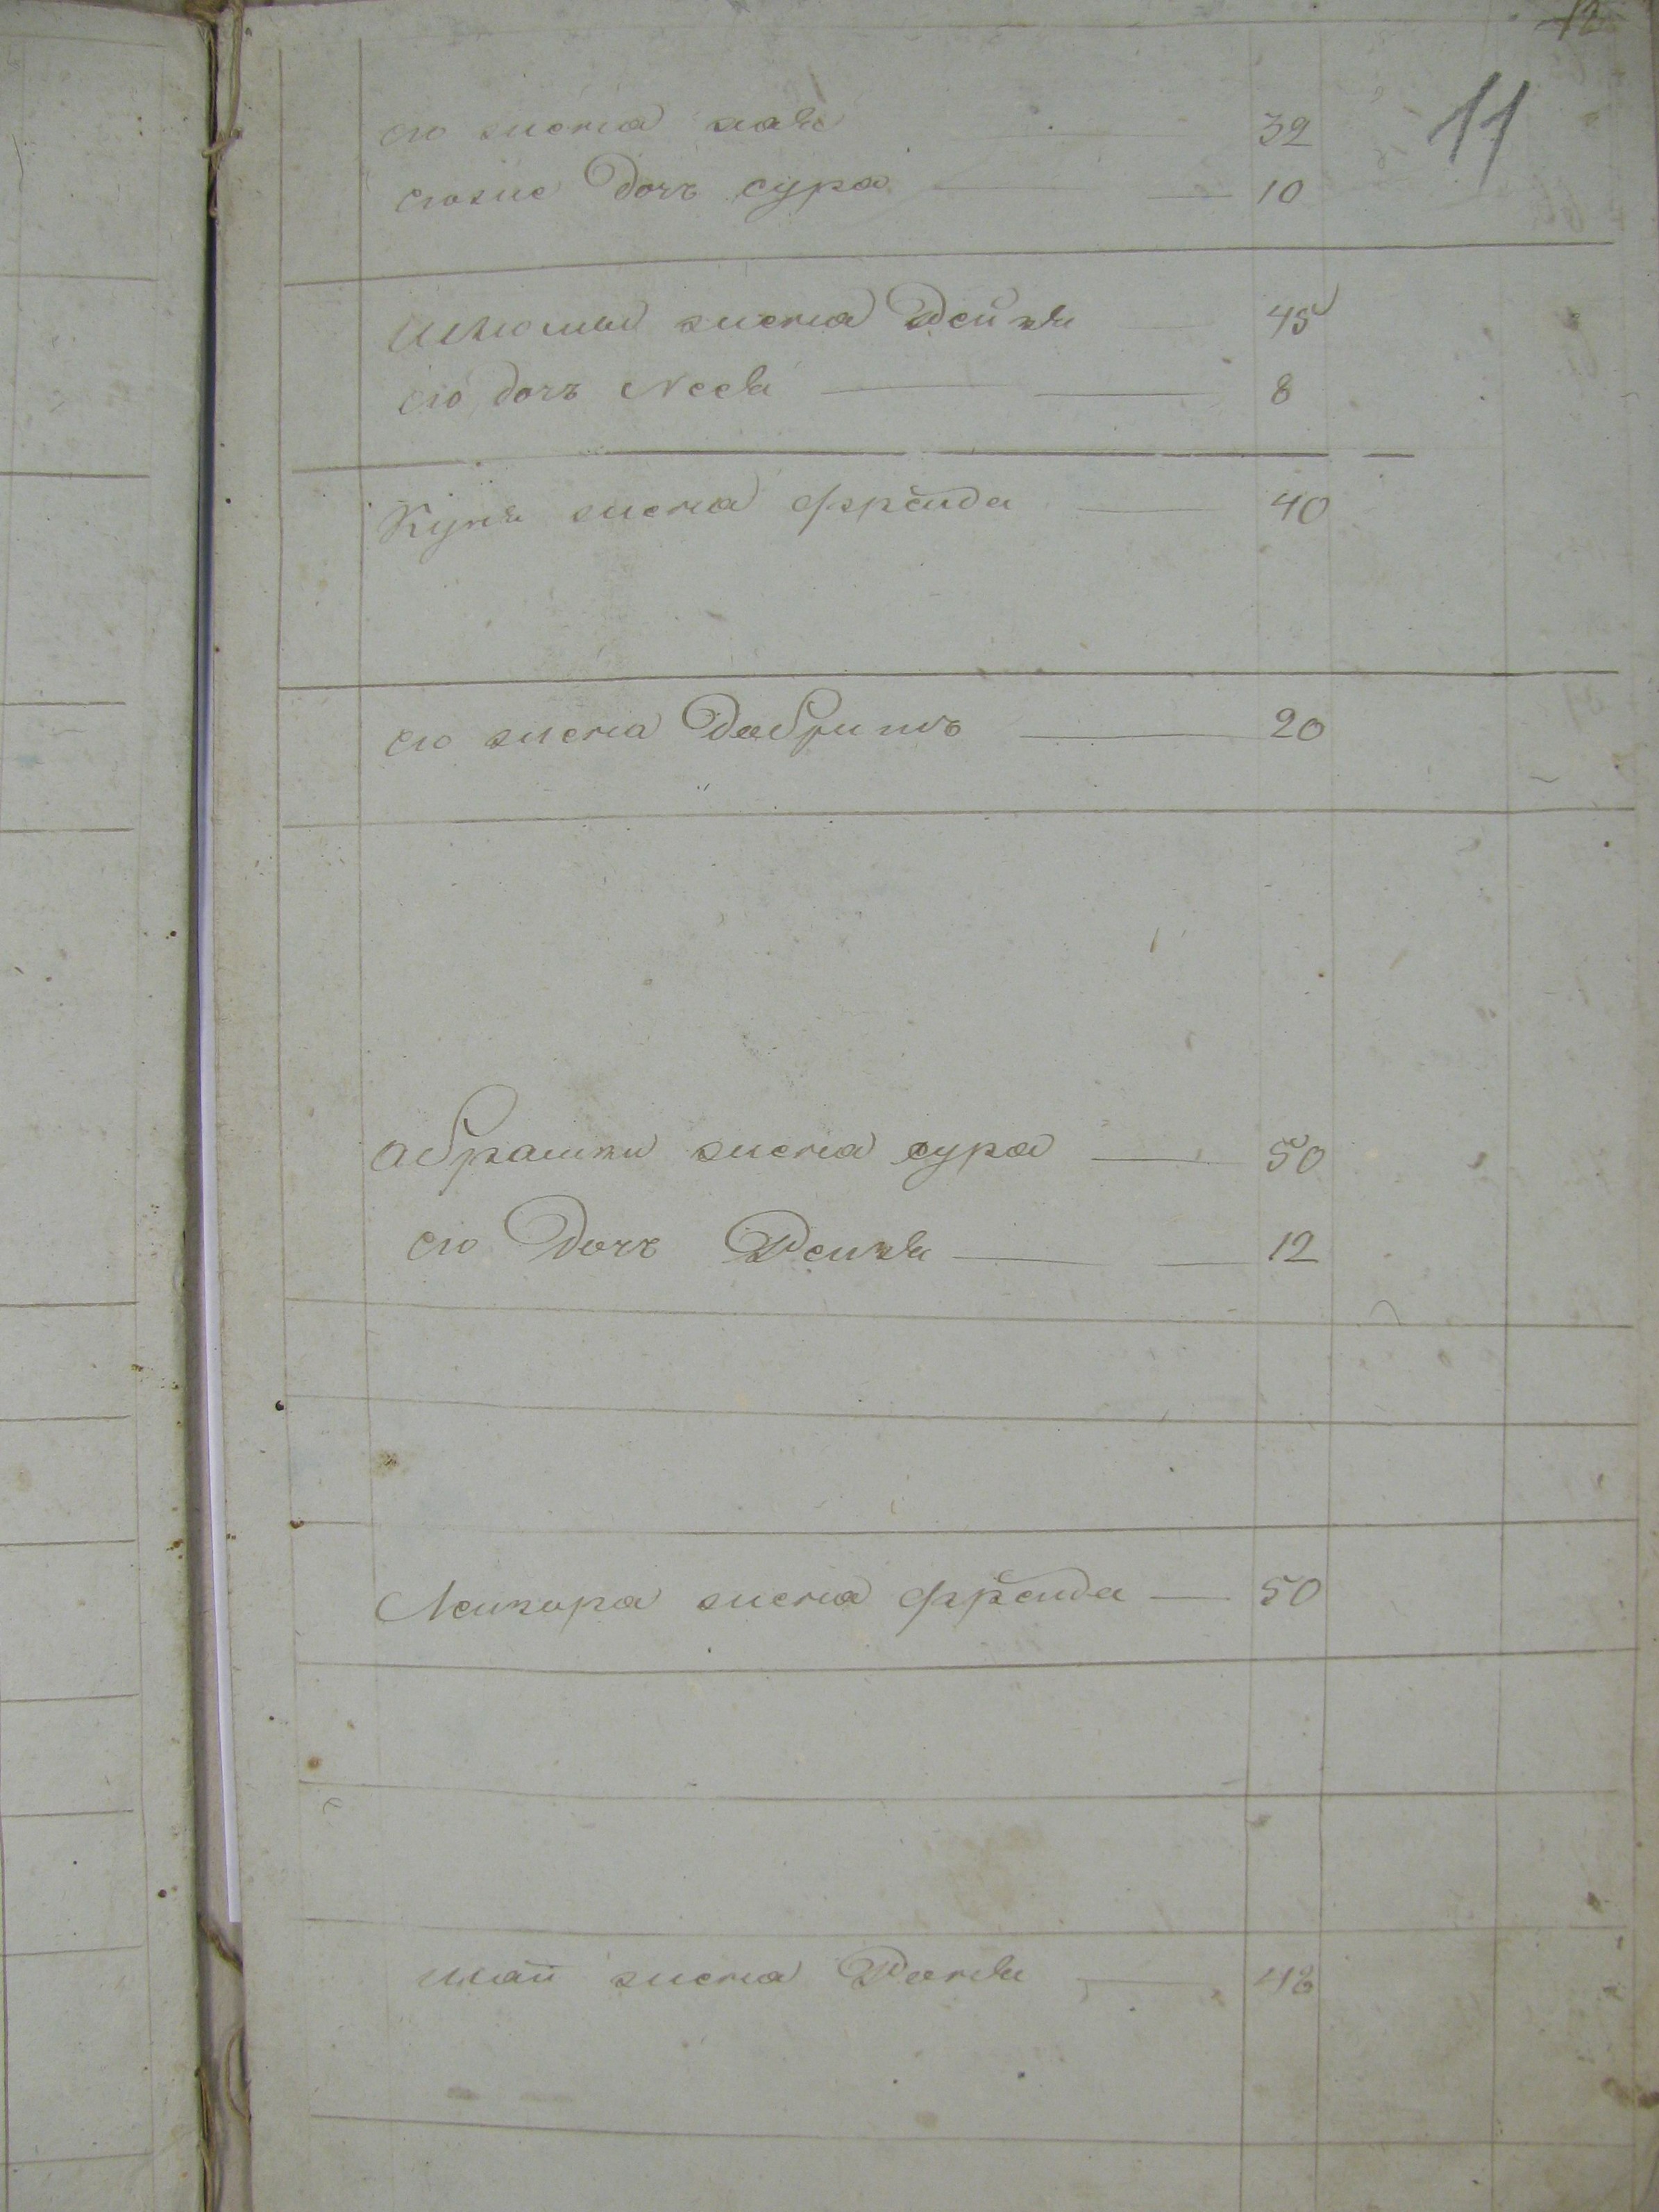 11
его жена хая 32
егоже дочь сура 10
Шлиомы жена Дейля 45
его дочь Неся 8
Куня жена фрейда 40
его жена Добришъ 20
абрашки жена сура 50
его дочь Рейзя 12
Лейзора жена фрейда 50
жена 48